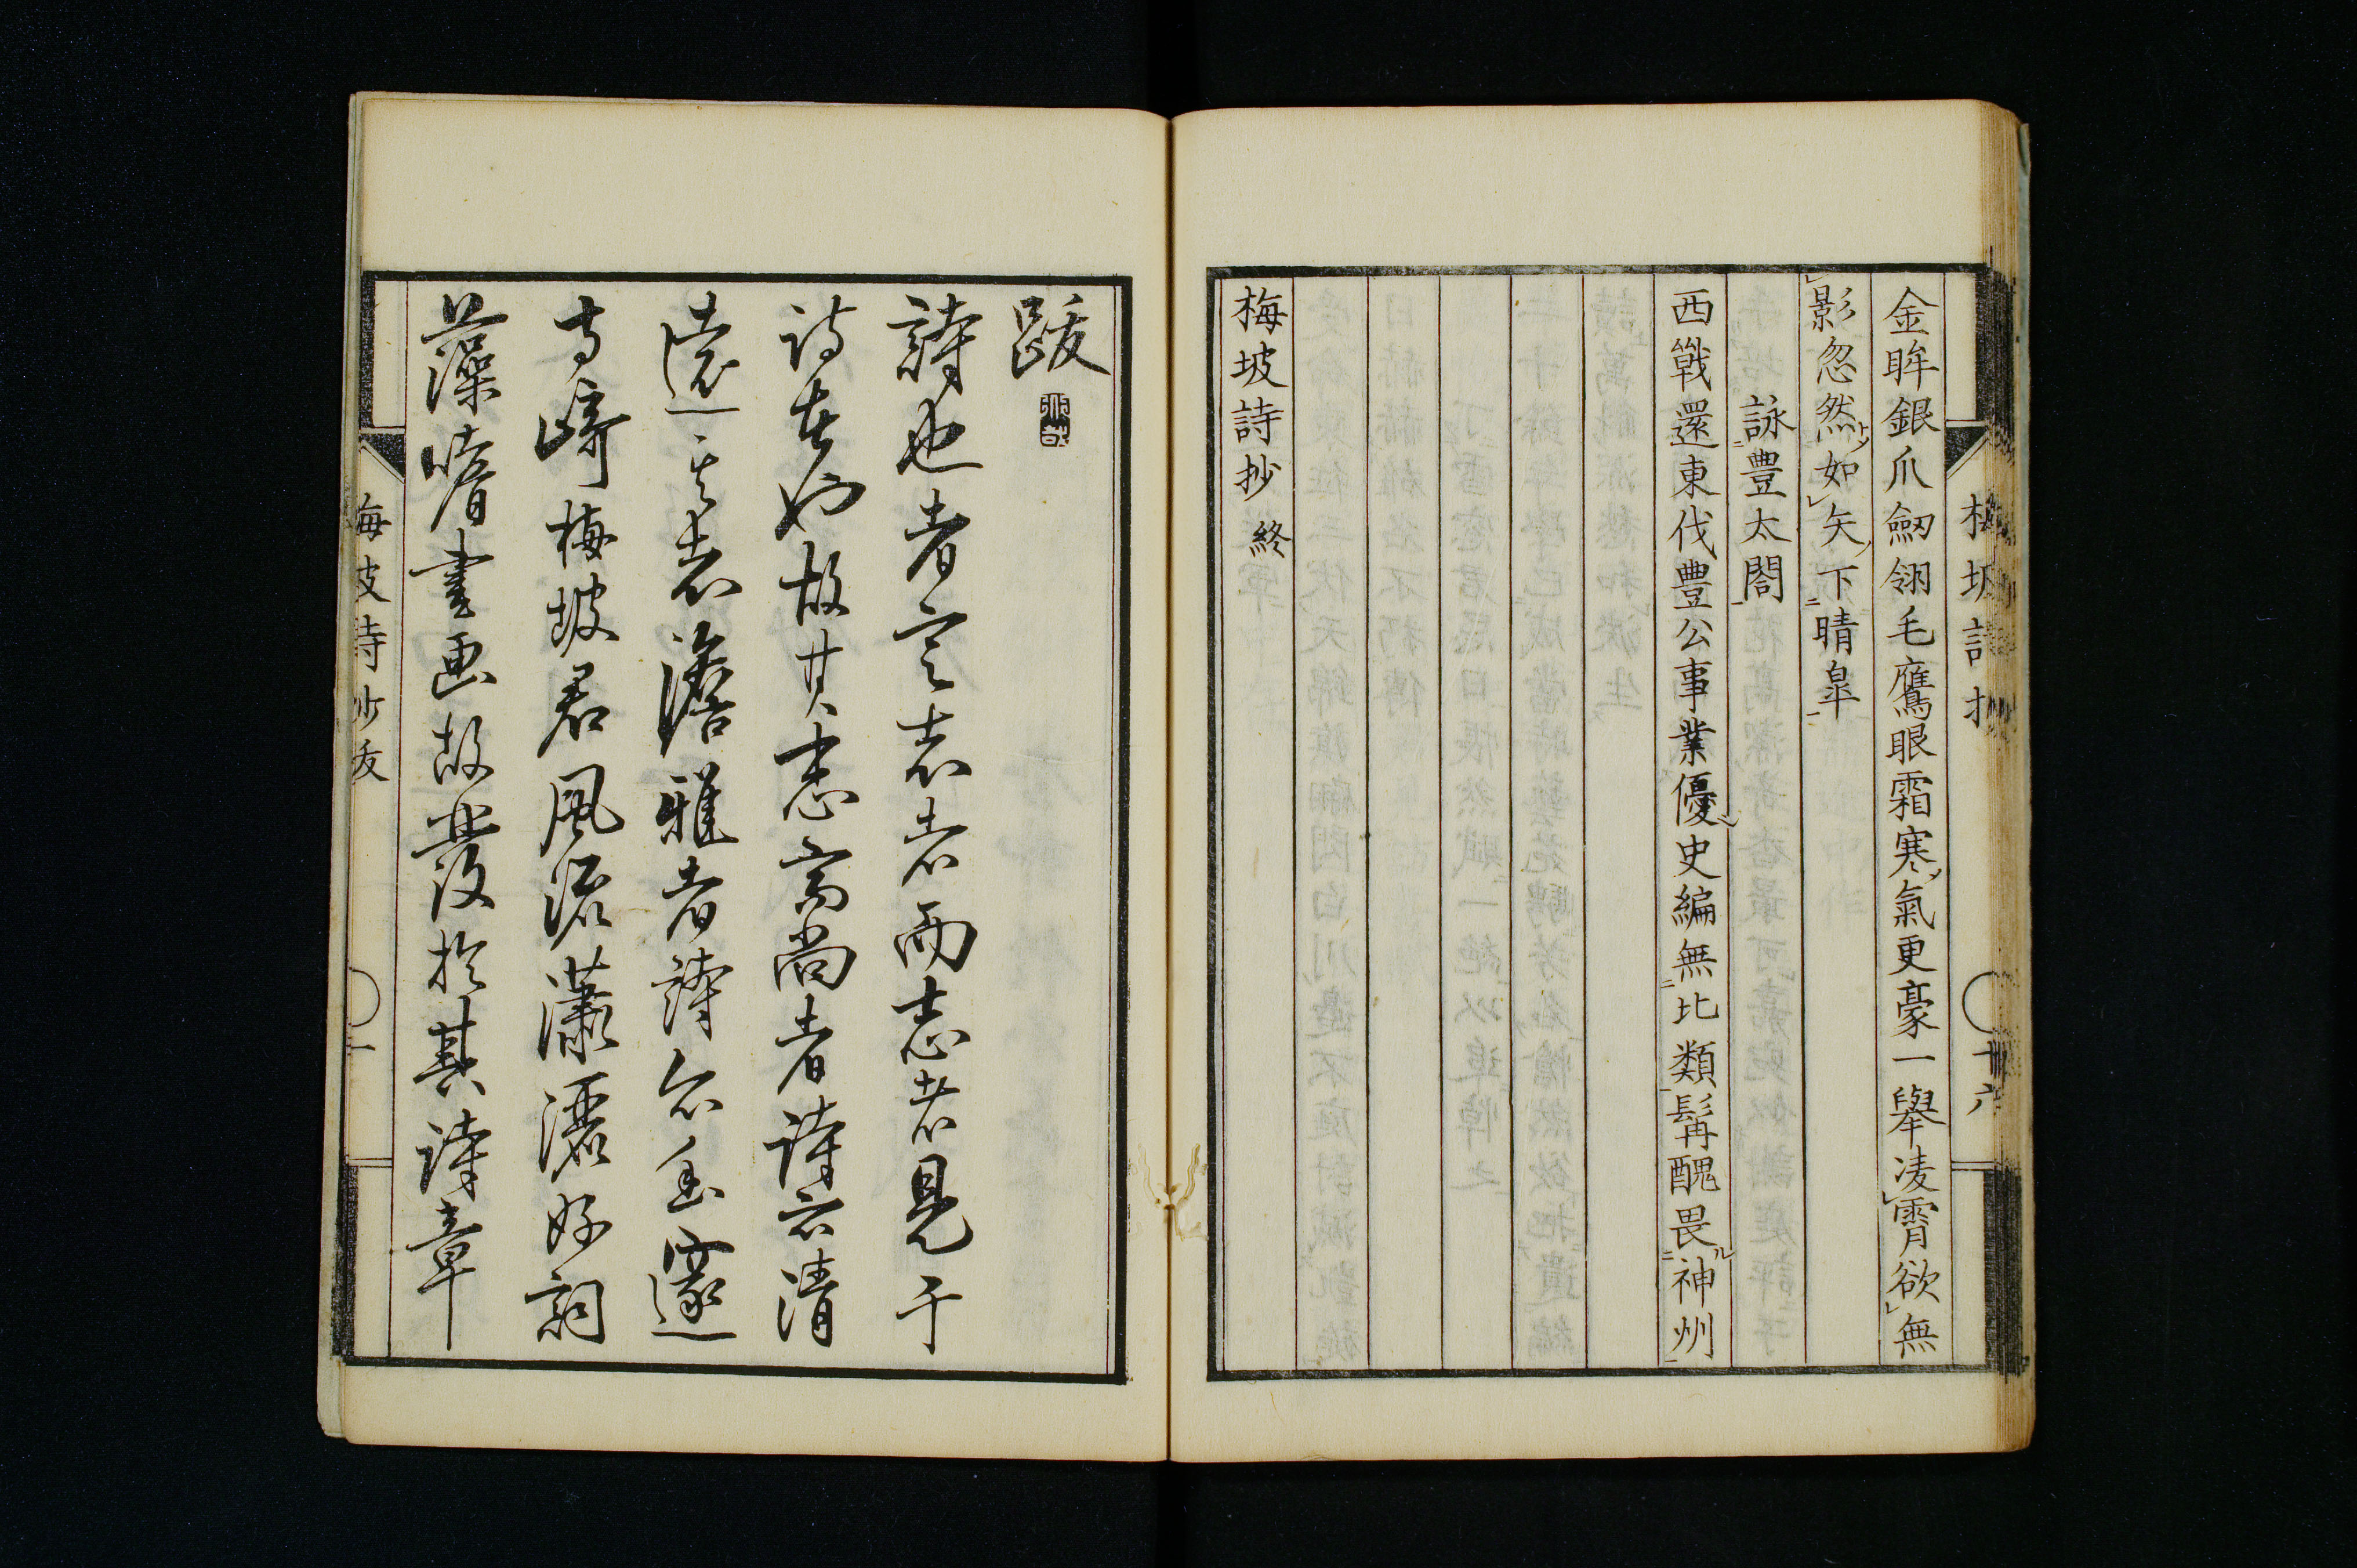 金眸銀爪劒翎毛鷹眼霜寒氣更豪一擧凌霄欲無
影忽然如矢下晴皐
詠豊太閤
西戰還東伐豊公事業優史編無比類髯醜畏神州
梅坡詩抄 終
梅坡詩抄
十六
跋
詩也者言志者而志者見于
詩者也故其志高尚者詩亦清
遠其志澹雅者詩亦幽邃
寺崎梅坡君風流瀟洒好詞
藻嗜書画故發於其詩章
梅坡詩抄跋
一